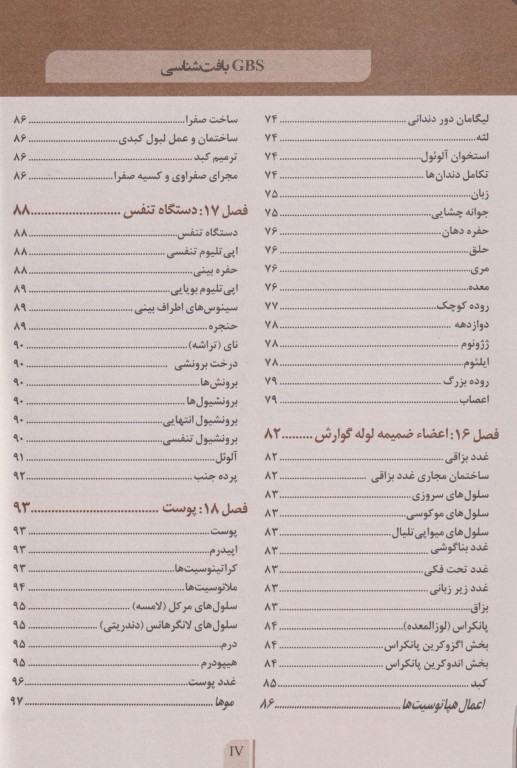 GBS بافت‌شناسی
لیگامان دور دندانی ........ ۷۴
لثه ........ ۷۴
استخوان آلوئول ........ ۷۴
تکامل دندان‌ها ........ ۷۴
زبان ........ ۷۵
جوانه چشایی ........ ۷۵
حفره دهان ........ ۷۶
حلق ........ ۷۶
مری ........ ۷۶
معده ........ ۷۶
روده کوچک ........ ۷۷
دوازدهه ........ ۷۸
ژژونوم ........ ۷۸
ایلئوم ........ ۷۸
روده بزرگ ........ ۷۹
اعصاب ........ ۷۹
فصل ۱۶: اعضاء ضمیمه لوله گوارش ........ ۸۲
غدد بزاقی ........ ۸۲
ساختمان مجاری غدد بزاقی ........ ۸۲
سلول‌های سروزی ........ ۸۳
سلول‌های موکوسی ........ ۸۳
سلول‌های میواپی‌تلیال ........ ۸۳
غدد بناگوشی ........ ۸۳
غدد تحت فکی ........ ۸۳
غدد زیر زبانی ........ ۸۳
بزاق ........ ۸۳
پانکراس (لوزالمعده) ........ ۸۴
بخش اگزوکرین پانکراس ........ ۸۴
بخش اندوکرین پانکراس ........ ۸۴
کبد ........ ۸۵
اعمال هپاتوسیت‌ها ........ ۸۶
ساخت صفرا ........ ۸۶
ساختمان و عمل لبول کبدی ........ ۸۶
ترمیم کبد ........ ۸۶
مجرای صفراوی و کسیه صفرا ........ ۸۶
فصل ۱۷: دستگاه تنفس ........ ۸۸
دستگاه تنفس ........ ۸۸
اپی‌تلیوم تنفسی ........ ۸۸
حفره بینی ........ ۸۸
اپی‌تلیوم بویایی ........ ۸۹
سینوس‌های اطراف بینی ........ ۸۹
حنجره ........ ۸۹
نای (تراشه) ........ ۹۰
درخت برونشی ........ ۹۰
برونش‌ها ........ ۹۰
برونشیول‌ها ........ ۹۰
برونشیول انتهایی ........ ۹۰
برونشیول تنفسی ........ ۹۰
آلوئل ........ ۹۱
پرده جنب ........ ۹۲
فصل ۱۸: پوست ........ ۹۳
پوست ........ ۹۳
اپیدرم ........ ۹۳
کراتینوسیت‌ها ........ ۹۳
ملانوسیت‌ها ........ ۹۴
سلول‌های مرکل (لامسه) ........ ۹۵
سلول‌های لانگرهانس (دندریتی) ........ ۹۵
درم ........ ۹۵
هیپودرم ........ ۹۵
غدد پوست ........ ۹۶
موها ........ ۹۷
IV